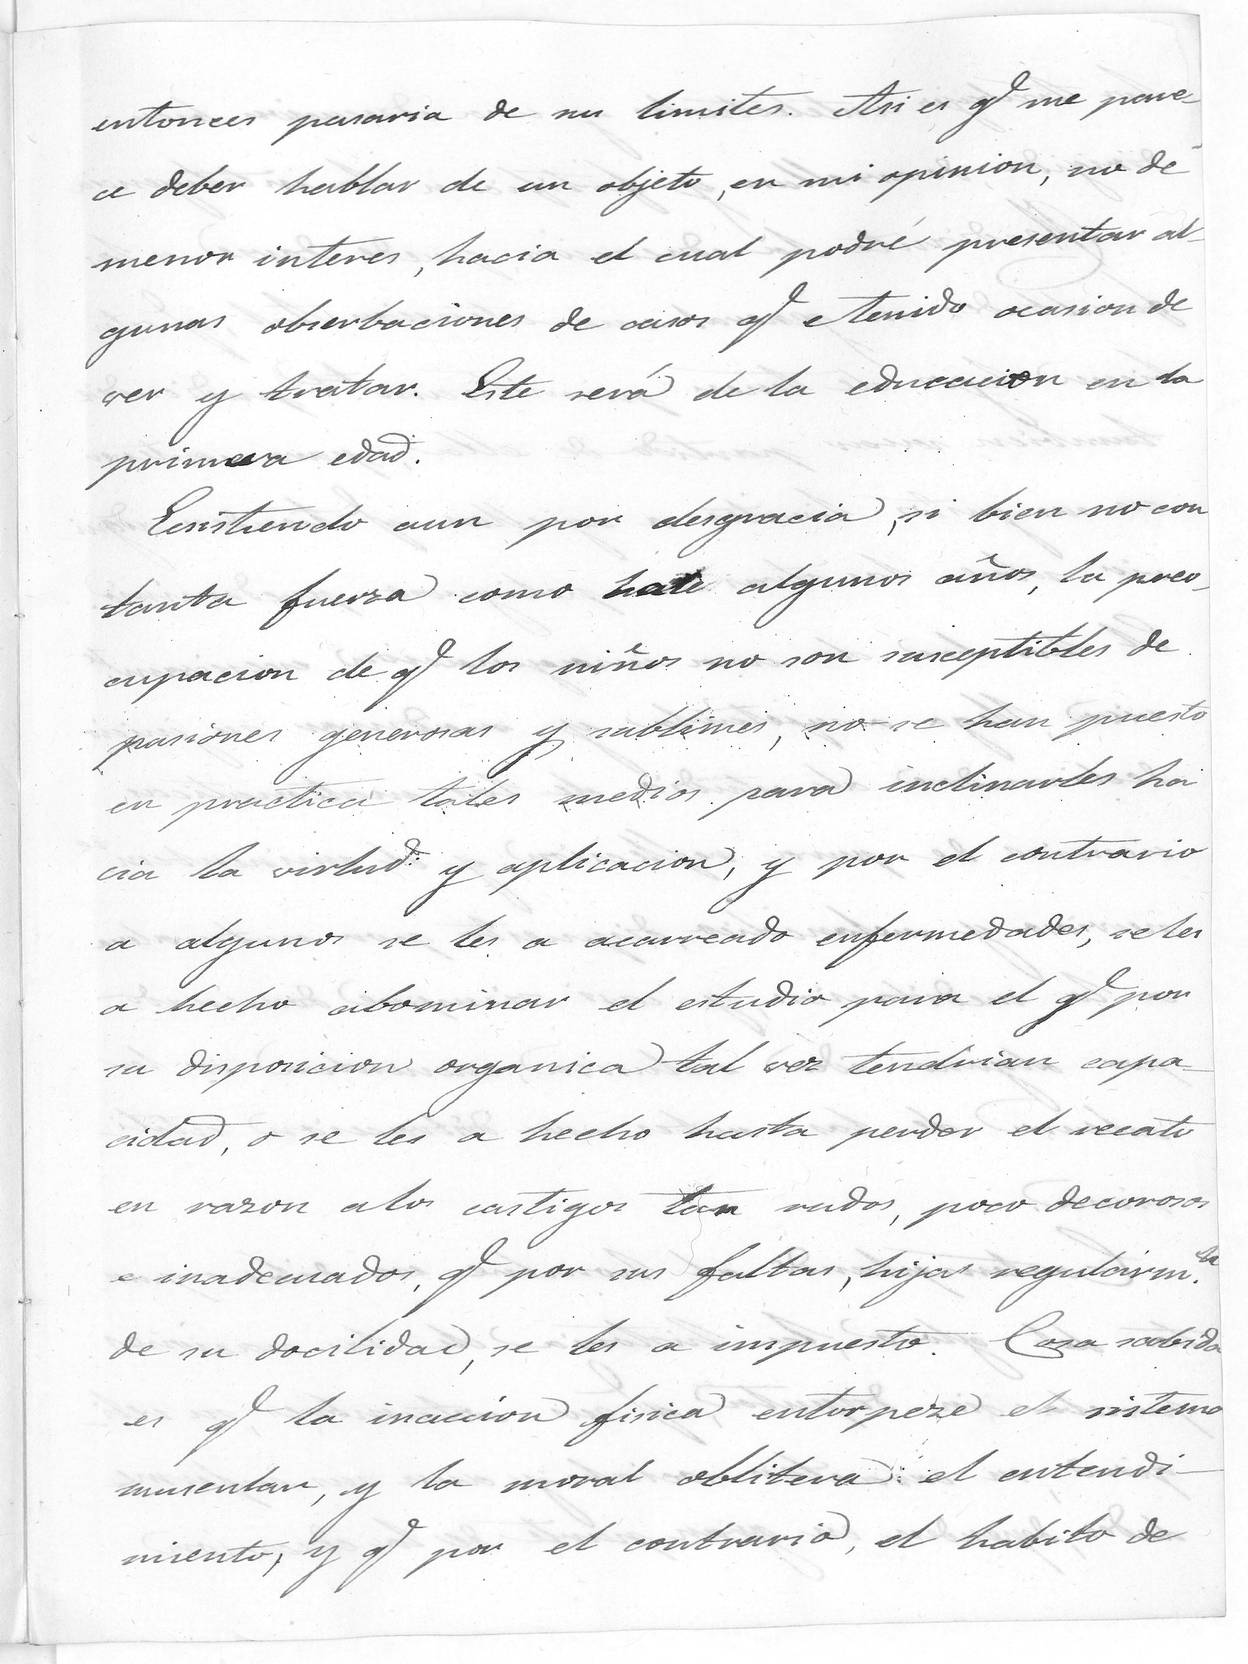 entonces pasaria de sus limites. Asi es q.e me pare-
ce deber hablar de un objeto, en mi opinion, no de
menor interes, hacia el cual podré presentar al-
gunas obserbaciones de casos q.e e tenido ocasion de
ver y tratar. Este será de la educacion en la
primera edad.
Ecsistiendo aun por desgracia, si bien no con
tanta fuerza como hace algunos años, la preo-
cupacion de q.e los niños no son susceptibles de
pasiones generosas y sublimes, no se han puesto
en practica tales medios para inclinarles ha
cia la virtud y aplicacion, y por el contrario
a algunos se les a acarreado enfermedades, se les
a hecho abominar el estudio para el q.e por
su disposicion organica tal vez tendrian capa-
cidad, o se les a hecho hasta perder el recato
en razon a los castigos tan rudos, poco decorosos
e inadecuados, q.e por sus faltas, hijas regularm.te
de su docilidad, se les a impuesto. Cosa sabida
es q.e la inaccion fisica entorpeze el sistema
muscular, y la moral oblitera el entendi-
miento, y q.e por el contrario, el habito de